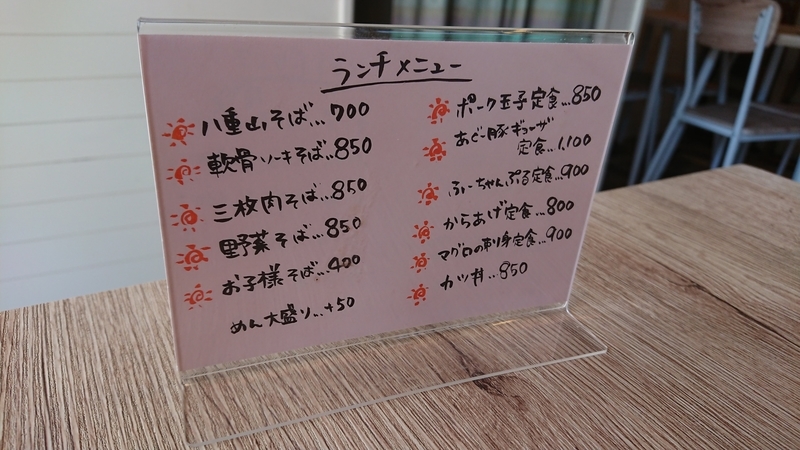 ランチメニュー
八重山そば…700
軟骨ソーキそば…850
三枚肉そば…850
野菜そば…850
お子様そば…400
めん大盛り…+50
ポーク玉子定食…850
あぐー豚ギョーザ
定食…1,100
ふーちゃんぷる定食…900
からあげ定食…800
マグロの刺身定食…900
カツ丼…850